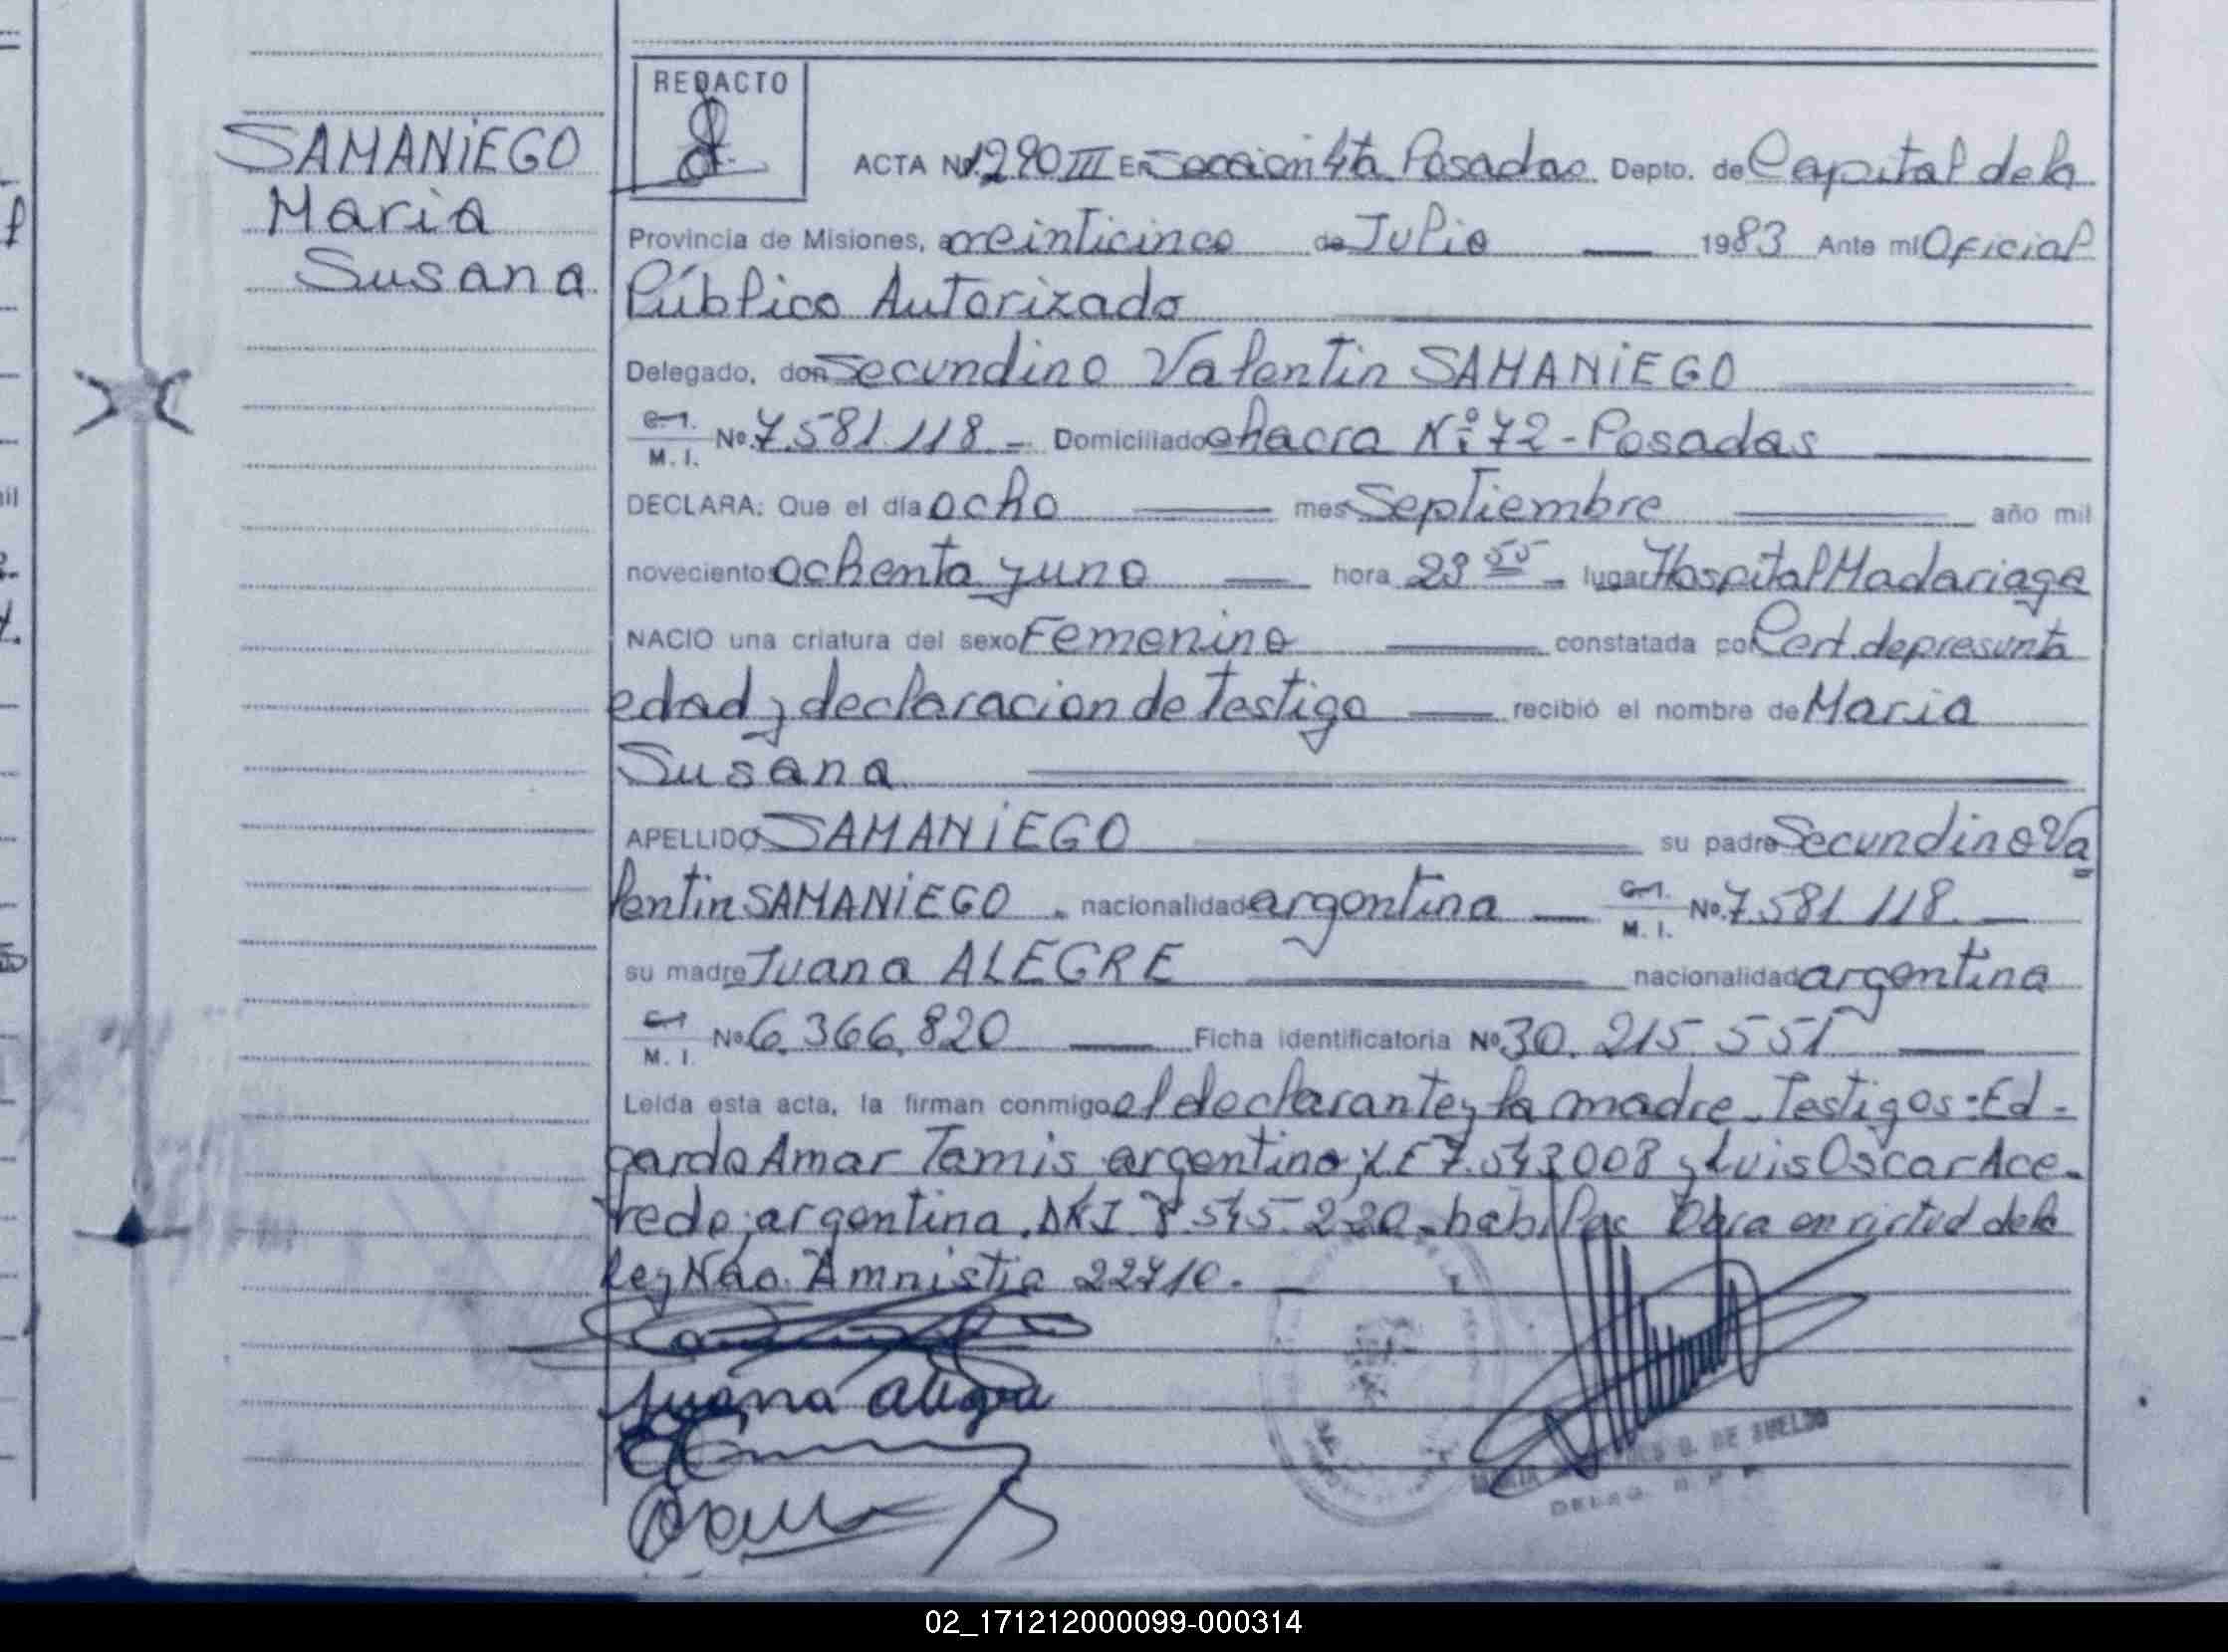 SAMANiEGO
Maria
Susana
REDACTO
ACTA Nº 1290 III EN Seccion 4ta Posadas Depto. de Capital de la
Provincia de Misiones, a veinticinco de Julio 1983 Ante mí Oficial
Público Autorizado
Delegado, don Secundino Valentin SAMANiEGO
C.I.
M. I. Nº 7.581.118 - Domiciliado chacra Nº 72 - Posadas
DECLARA: Que el día ocho mes Septiembre año mil
novecientos ochenta y uno hora 23 55 lugar Hospital Madariaga
NACIO una criatura del sexo Femenino constatada por Cert. de presunta
edad y declaracion de testigo recibió el nombre de Maria
Susana
APELLIDO SAMANiEGO su padre Secundino Va
lentin SAMANiEGO - nacionalidad argentina C.I.
M. I. Nº 7.581.118.
su madre Juana ALEGRE nacionalidad argentina
C.I.
M. I. Nº 6.366.820 Ficha identificatoria Nº 30.215.551
Leída esta acta, la firman conmigo el declarante y la madre. Testigos: Ed-
gardo Amar Tamis argentino, L.E 7.543008 y Luis Oscar Ace-
vedo, argentina. DNI 8.545.220 - habiles Obra en virtud de la
ley Nao. Amnistia 22410.
Juana Alegre
DE SUELDO
02_171212000099-000314